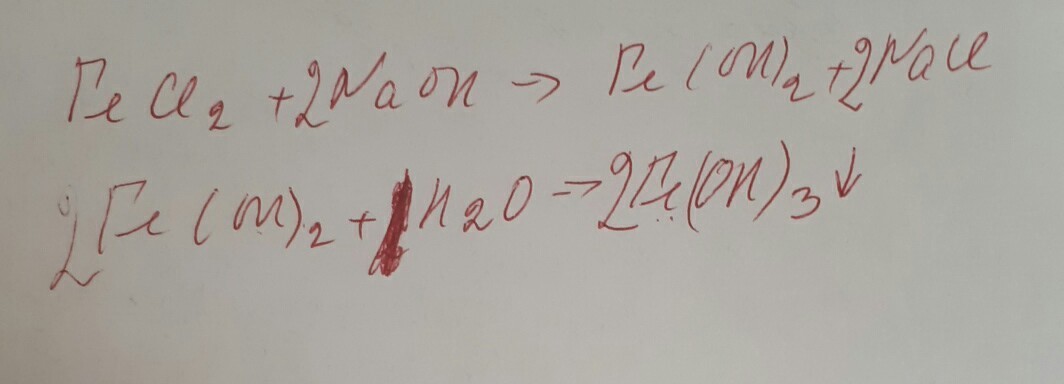 FeCl₂ + 2NaOH → Fe(OH)₂ + 2NaCl
2Fe(OH)₂ + H₂O → 2Fe(OH)₃↓